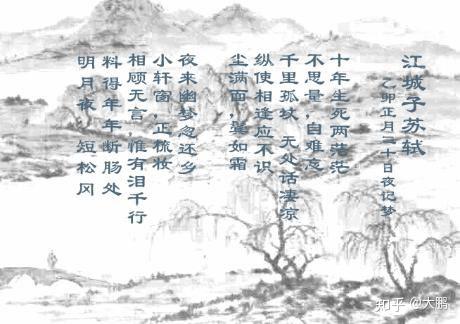 江城子 苏轼
乙卯正月二十日夜记梦
十年生死两茫茫
不思量,自难忘
千里孤坟 无处话凄凉
纵使相逢应不识
尘满面,鬓如霜
夜来幽梦忽还乡
小轩窗,正梳妆
相顾无言,惟有泪千行
料得年年断肠处
明月夜 短松冈
知乎 @大鹏